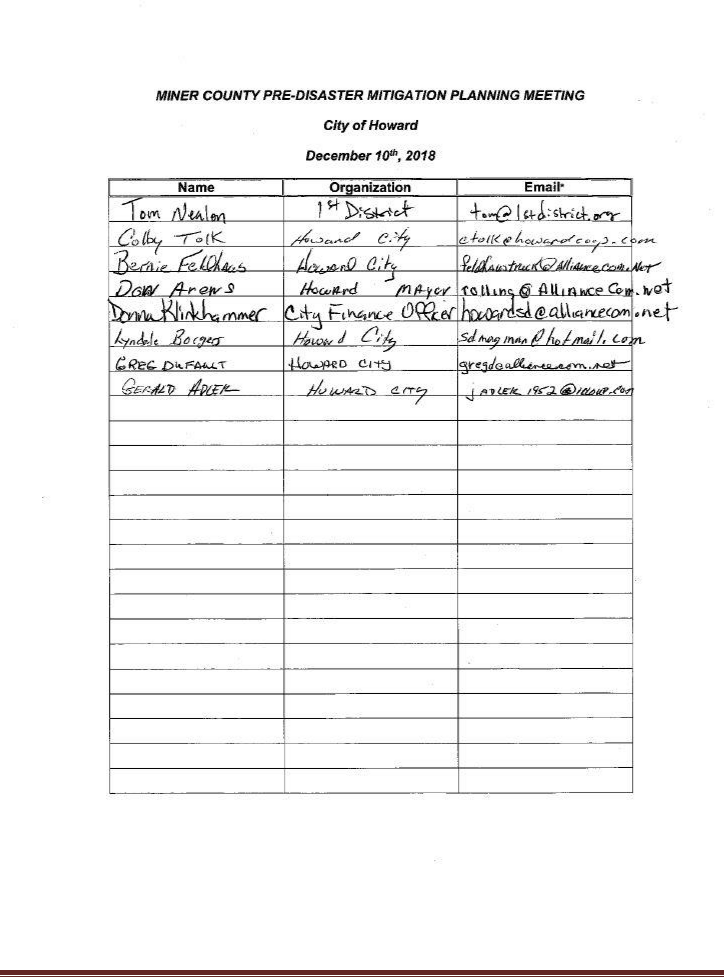 MINER COUNTY PRE-DISASTER MITIGATION PLANNING MEETING
City of Howard
December 10th, 2018
Name Organization Email
Tom Nealon 1st District tom@1stdistrict.org
Colby Tolk Howard City ctolk@howardcoop.com
Bernie Feldhaus Howard City feldhaustruck@Alliancecom.Net
Dan Arens Howard Mayor rolling@AllianceCom.net
Donna Klinkhammer City Finance Officer howardsd@alliancecom.net
Lyndale Borgers Howard City sdmagman@hotmail.com
GREG DUFAULT HOWARD CITY gregd@alliancecom.net
GERALD ADLER HOWARD CITY jADLER1952@icloud.com